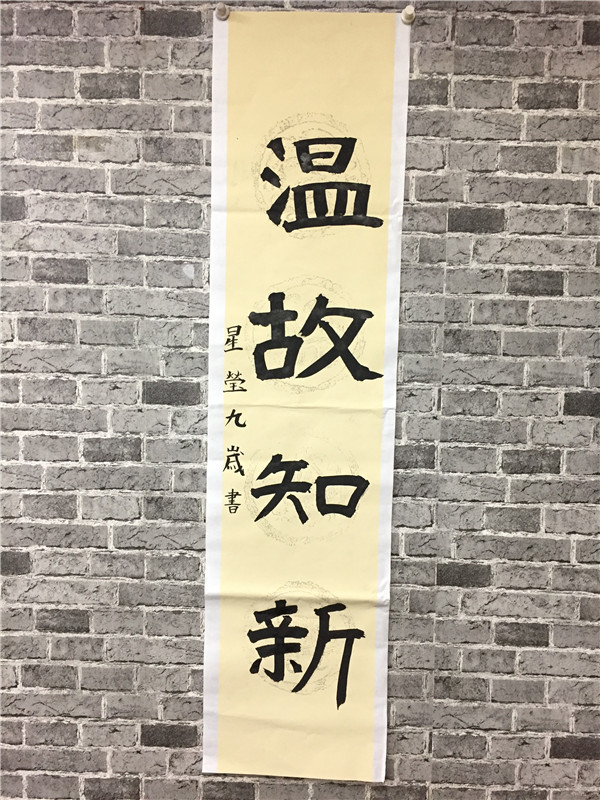 温故知新
星瑩九歲書